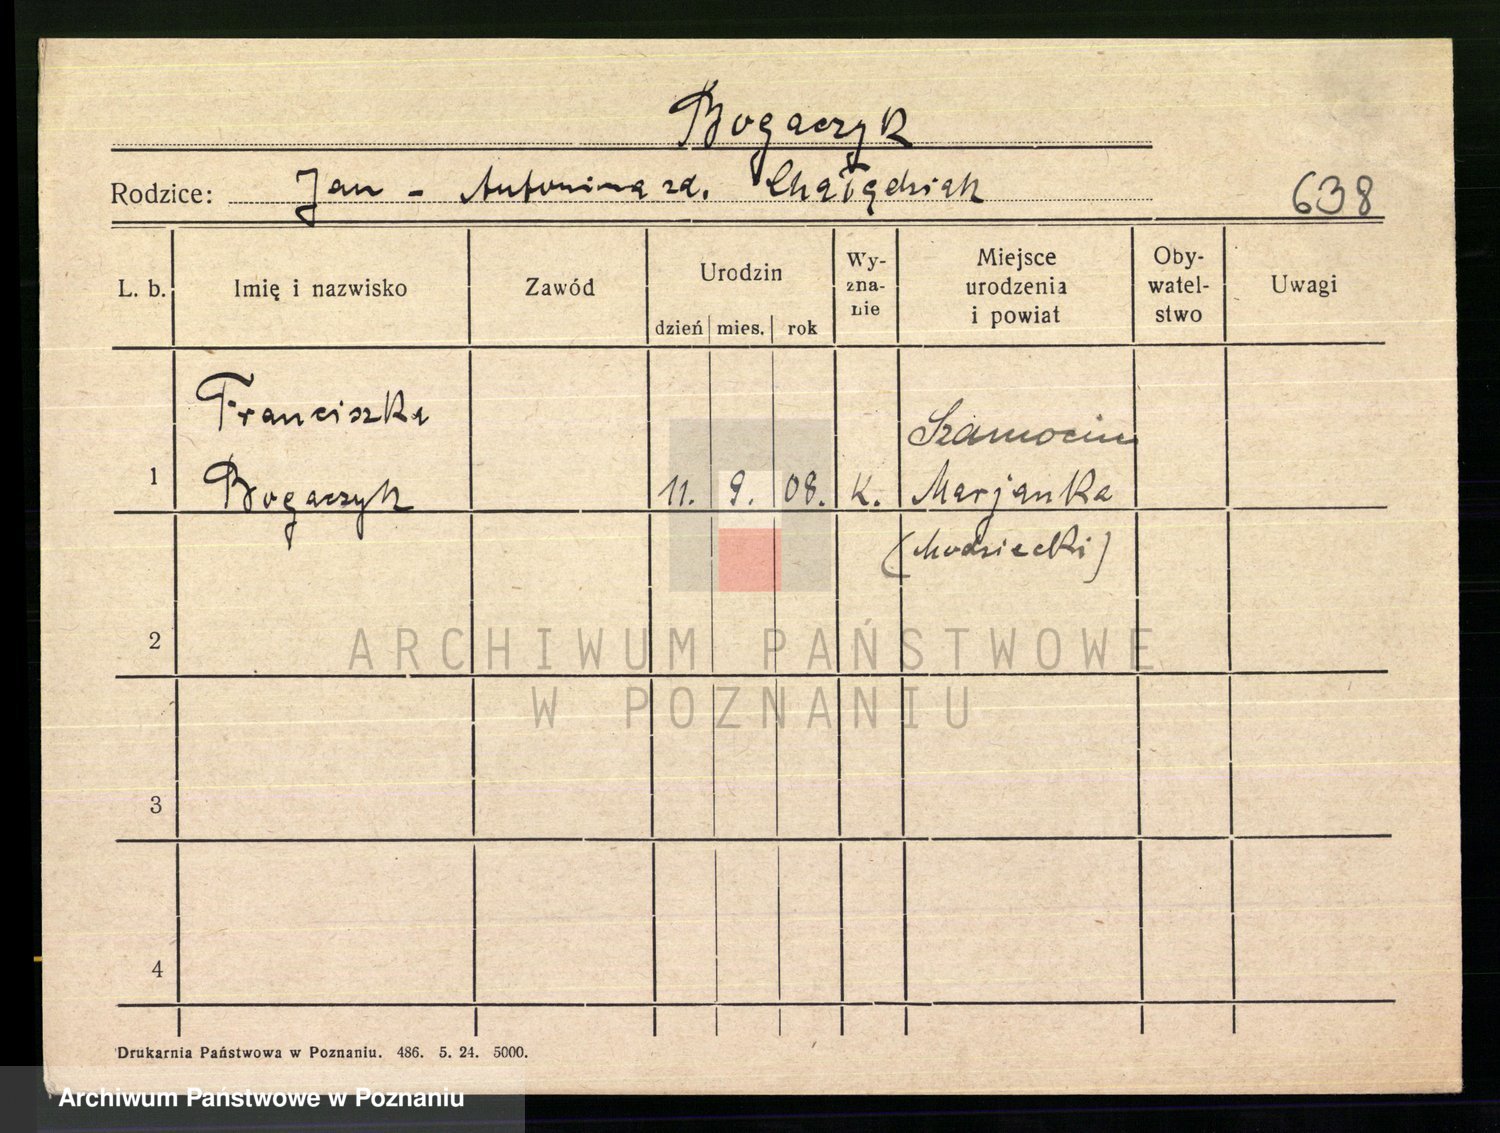 Bogaczyk
Rodzice: Jan - Antonina zd. Chałędziak
638
L. b. Imię i nazwisko Zawód Urodzin dzień mies. rok Wy-zna-nie Miejsce urodzenia i powiat Oby-watel-stwo Uwagi
Franciszka
Szamocin
1 Bogaczyk 11. 9. 08. K. Marjanka
2
3
4
Drukarnia Państwowa w Poznaniu. 486. 5. 24. 5000.
ARCHIWUM PAŃSTWOWE
W POZNANIU
Archiwum Państwowe w Poznaniu